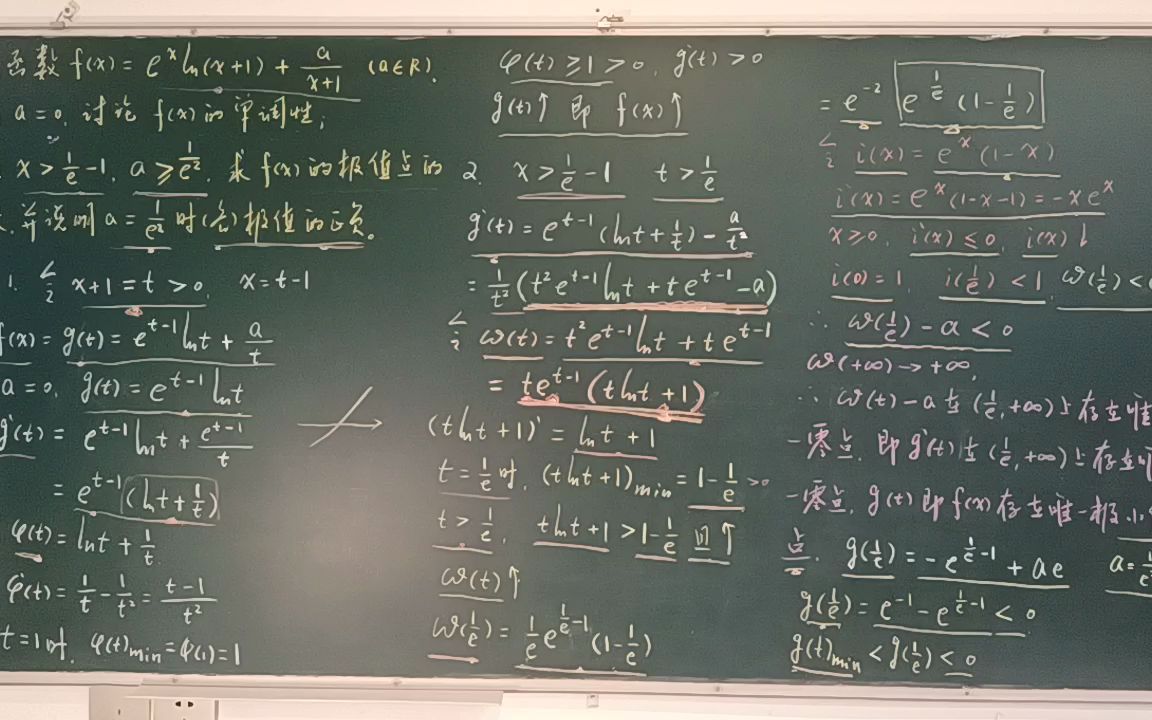 函数 f(x) = e^x ln(x+1) + a/(x+1) (a∈R).
a = 0, 讨论 f(x)的单调性;
x > 1/e - 1, a ≥ 1/e², 求 f(x)的极值点的
并说明 a = 1/e² 时(各)极值的正负。
1. 令 x+1 = t > 0, x = t-1
f(x) = g(t) = e^{t-1} ln t + a/t
a = 0, g(t) = e^{t-1} ln t
g'(t) = e^{t-1} ln t + e^{t-1}/t
= e^{t-1} (ln t + 1/t)
φ(t) = ln t + 1/t
φ'(t) = 1/t - 1/t² = (t-1)/t²
t = 1时, φ(t)min = φ(1) = 1
φ(t) ≥ 1 > 0, g'(t) > 0
g(t)↑ 即 f(x)↑
2. x > 1/e - 1 t > 1/e
g'(t) = e^{t-1} (ln t + 1/t) - a/t²
= 1/t² (t² e^{t-1} ln t + t e^{t-1} - a)
令 ω(t) = t² e^{t-1} ln t + t e^{t-1}
= t e^{t-1} (t ln t + 1)
(t ln t + 1)' = ln t + 1
t = 1/e 时, (t ln t + 1)min = 1 - 1/e > 0
t > 1/e, t ln t + 1 > 1 - 1/e 且↑
ω(t)↑
ω(1/e) = 1/e e^{1/e - 1} (1 - 1/e)
= e^{-2} e^{1/e} (1 - 1/e)
令 i(x) = e^x (1-x)
i'(x) = e^x (1-x-1) = -x e^x
x ≥ 0, i'(x) ≤ 0, i(x)↓
i(0) = 1, i(1/e) < 1, ω(1/e) <
∴ ω(1/e) - a < 0
ω(+∞) → +∞,
∴ ω(t) - a 在 (1/e, +∞)上存在唯
一零点, 即 g'(t) 在 (1/e, +∞)上存在唯
一零点, g(t)即 f(x)存在唯一极小
点. g(1/e) = -e^{1/e - 1} + ae a =
g(1/e) = e^{-1} - e^{1/e - 1} < 0
g(t)min < g(1/e) < 0